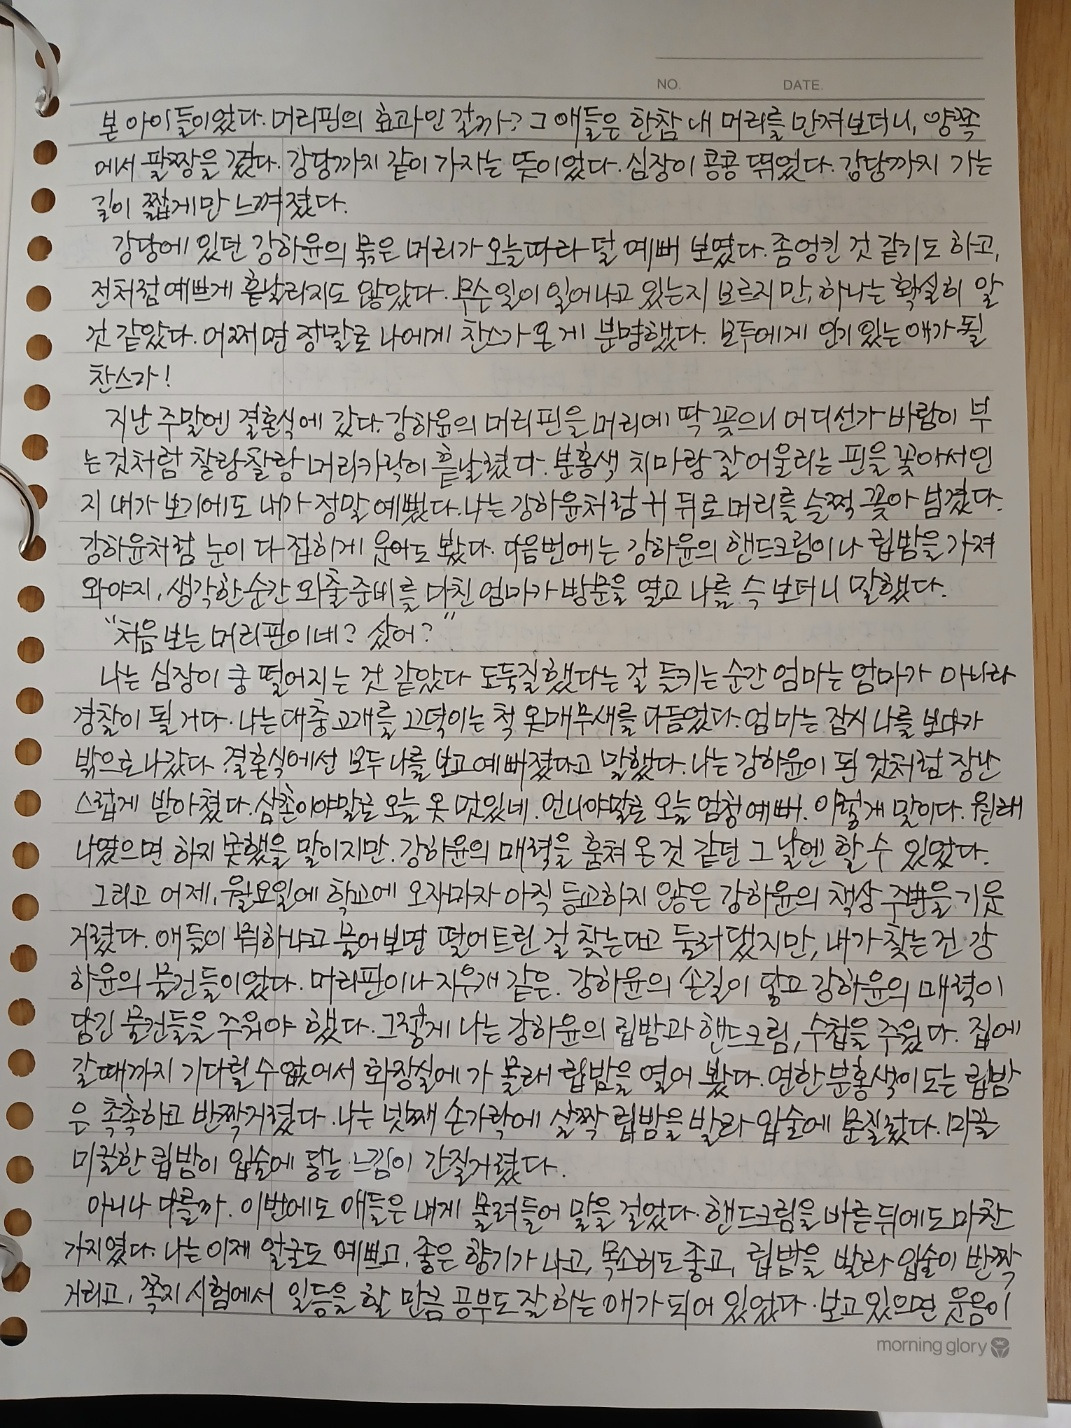 NO. DATE.
본 아이들이었다. 머리핀의 효과인 걸까? 그 애들은 한참 내 머리를 만져보더니, 양쪽
에서 팔짱을 꼈다. 강당까지 같이 가자는 뜻이었다. 심장이 콩콩 뛰었다. 강당까지 가는
길이 짧게만 느껴졌다.
강당에 있던 강하윤의 묶은 머리가 오늘따라 덜 예뻐 보였다. 좀 엉킨 것 같기도 하고,
전처럼 예쁘게 흩날리지도 않았다. 무슨 일이 일어나고 있는지 모르지만, 하나는 확실히 알
것 같았다. 어쩌면 정말로 나에게 찬스가 온 게 분명했다. 모두에게 인기 있는 애가 될
찬스가!
지난 주말엔 결혼식에 갔다. 강하윤의 머리핀을 머리에 딱 꽂으니 어디선가 바람이 부
는 것처럼 찰랑찰랑 머리카락이 흩날렸다. 분홍색 치마랑 잘 어울리는 핀을 꽂아서인
지 내가 보기에도 내가 정말 예뻤다. 나는 강하윤처럼 귀 뒤로 머리를 슬쩍 꽂아 넘겼다.
강하윤처럼 눈이 다 접히게 웃어도 봤다. 다음번에는 강하윤의 핸드크림이나 립밤을 가져
와야지, 생각한 순간 외출 준비를 마친 엄마가 방문을 열고 나를 슥 보더니 말했다.
"처음 보는 머리핀이네? 샀어?"
나는 심장이 쿵 떨어지는 것 같았다 도둑질했다는 걸 들키는 순간 엄마는 엄마가 아니라
경찰이 될 거다. 나는 대충 고개를 끄덕이는 척 옷매무새를 다듬었다. 엄마는 잠시 나를 보다가
밖으로 나갔다. 결혼식에선 모두 나를 보고 예뻐졌다고 말했다. 나는 강하윤이 된 것처럼 장난
스럽게 받아쳤다. 삼촌이야말로 오늘 옷 멋있네. 언니야말로 오늘 엄청 예뻐. 이렇게 말이다. 원래
나였으면 하지 못했을 말이지만. 강하윤의 매력을 훔쳐 온 것 같던 그 날엔 할 수 있었다.
그리고 어제, 월요일에 학교에 오자마자 아직 등교하지 않은 강하윤의 책상 주변을 기웃
거렸다. 애들이 뭐하냐고 물어보면 떨어트린 걸 찾는다고 둘러댔지만, 내가 찾는 건 강
하윤의 물건들이었다. 머리핀이나 지우개 같은. 강하윤의 손길이 닿고 강하윤의 매력이
담긴 물건들을 주워야 했다. 그렇게 나는 강하윤의 립밤과 핸드크림, 수첩을 주웠다. 집에
갈 때까지 기다릴 수 없어서 화장실에 가 몰래 립밤을 열어 봤다. 연한 분홍색이 도는 립밤
은 촉촉하고 반짝거렸다. 나는 넷째 손가락에 살짝 립밤을 발라 입술에 문질렀다. 미끌
미끌한 립밤이 입술에 닿는 느낌이 간질거렸다.
아니나 다를까. 이번에도 애들은 내게 몰려들어 말을 걸었다. 핸드크림을 바른 뒤에도 마찬
가지였다. 나는 이제 얼굴도 예쁘고, 좋은 향기가 나고, 목소리도 좋고, 립밤을 발라 입술이 반짝
거리고, 쪽지 시험에서 일등을 할 만큼 공부도 잘 하는 애가 되어 있었다. 보고 있으면 웃음이
morning glory